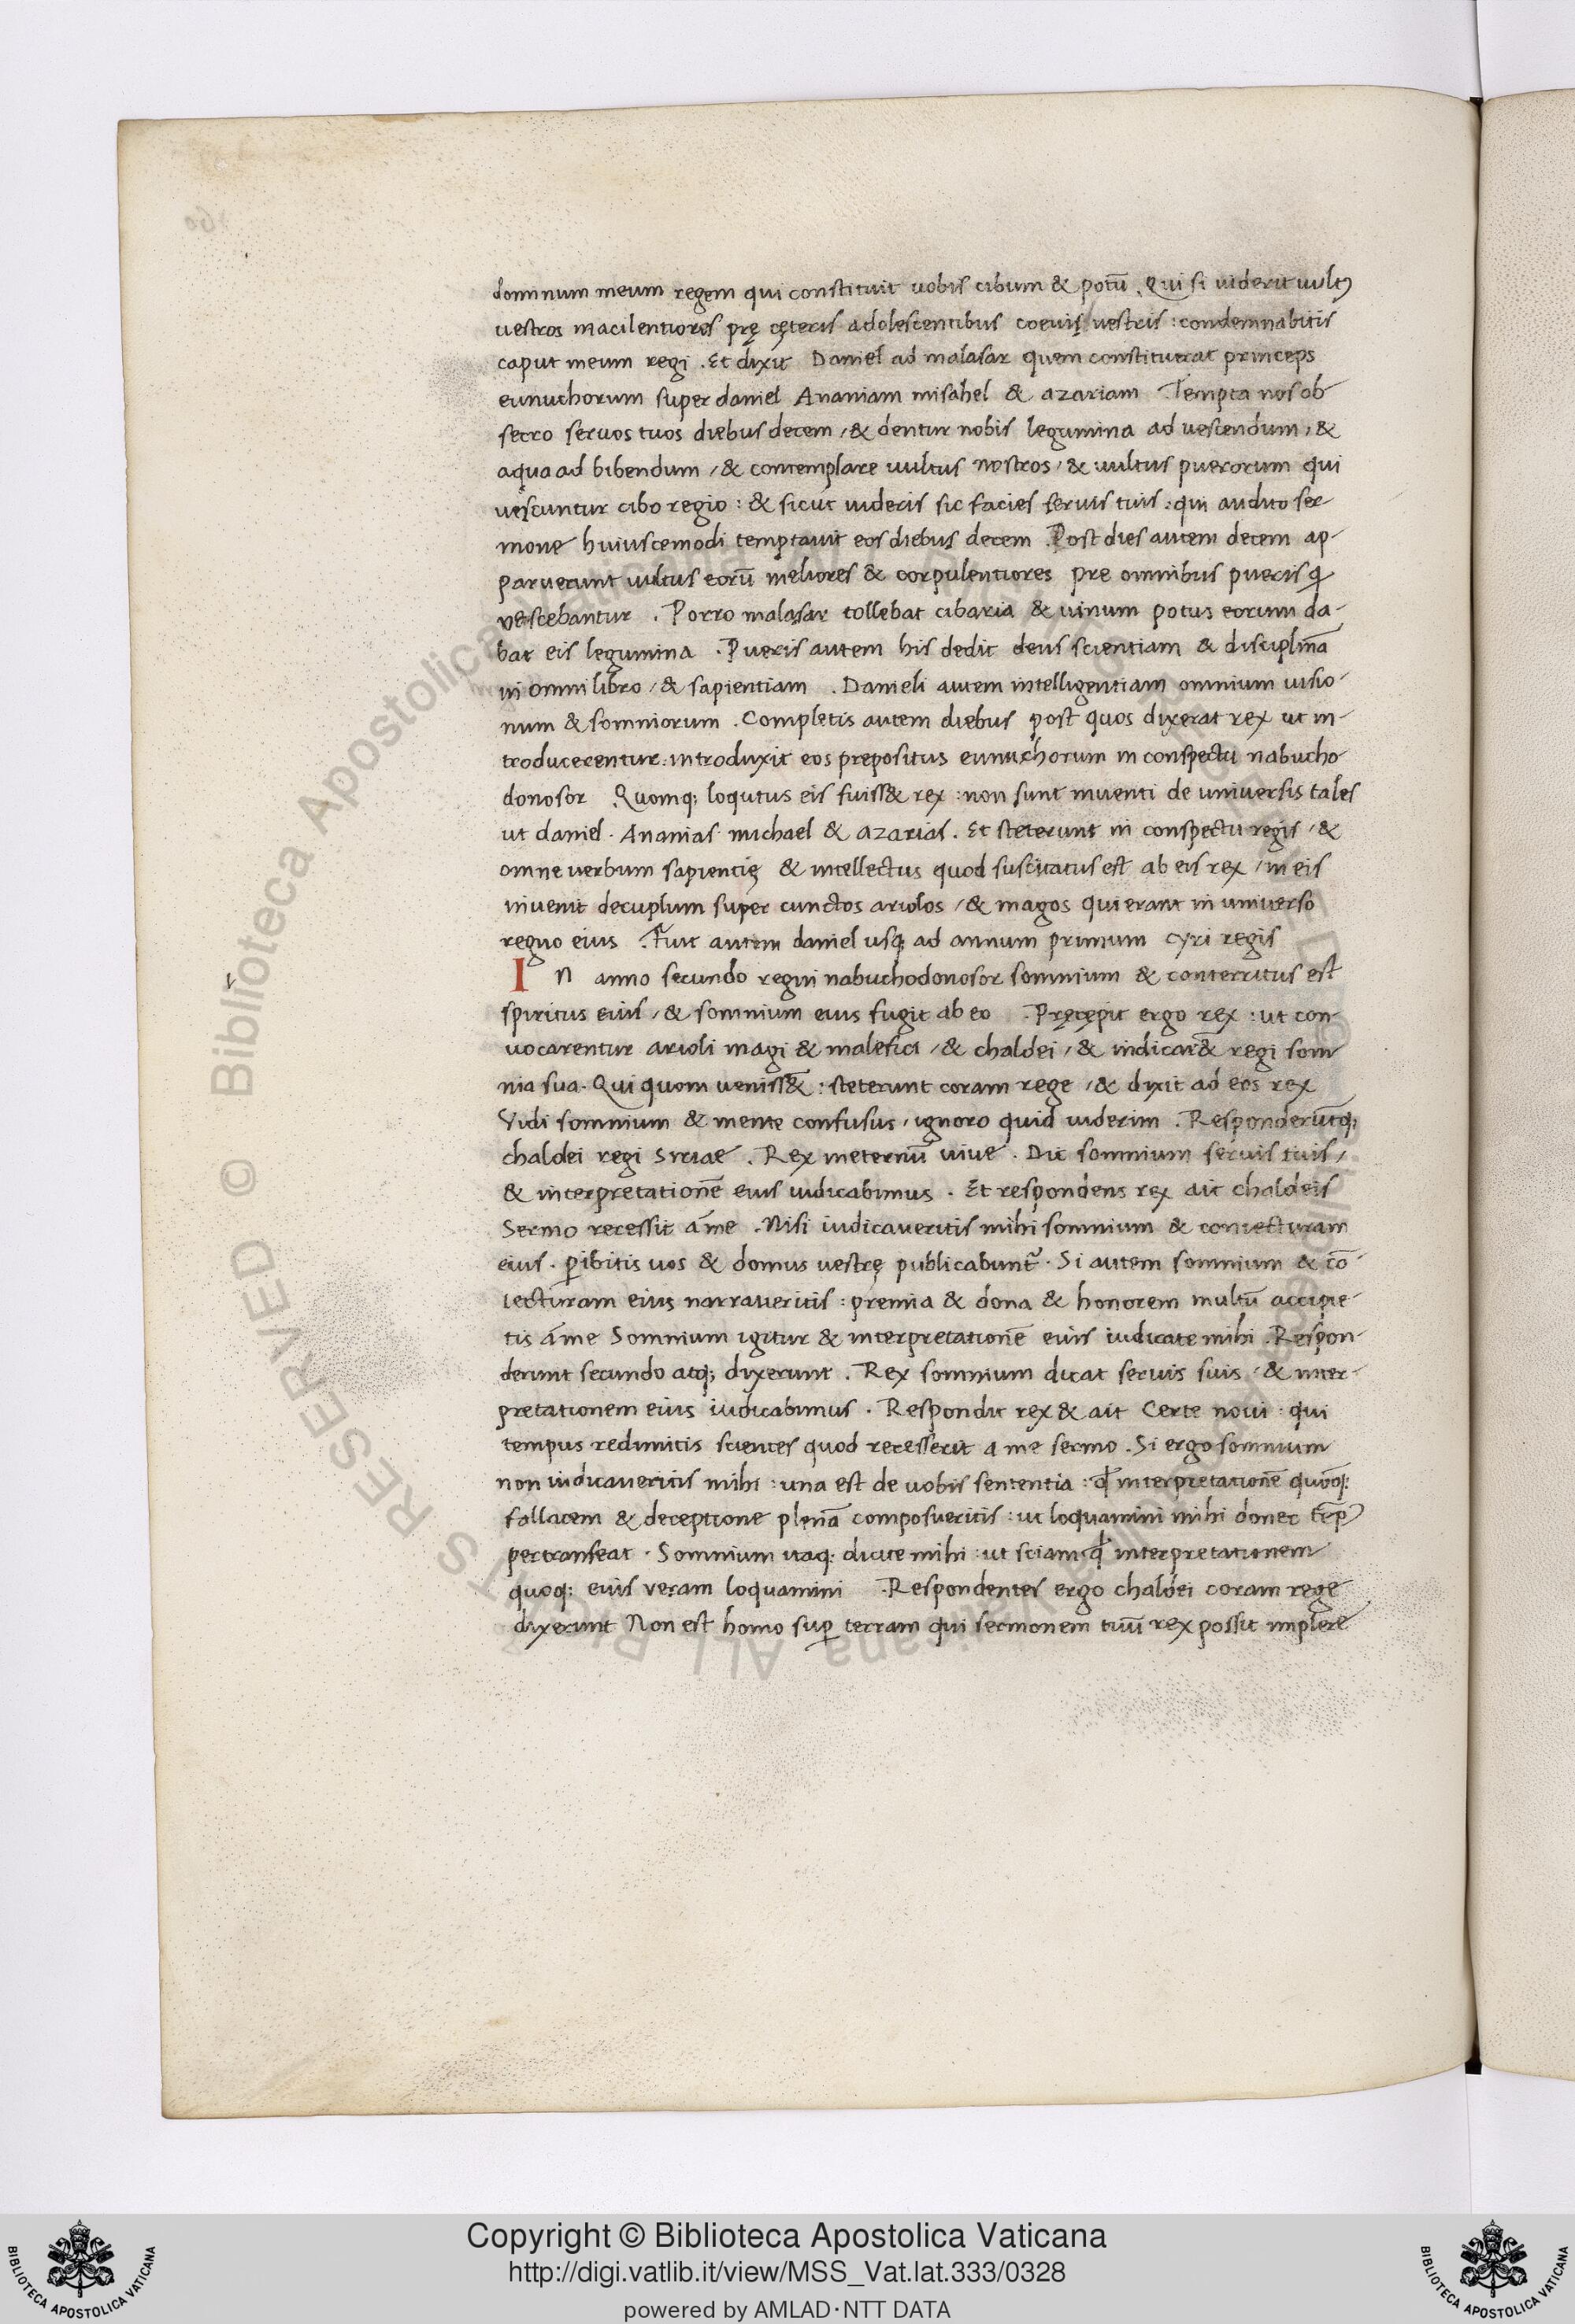 dominum meum regem qui constituit uobis cibum & potū. Qui si uiderit uultꝰ
uestros macilentiores prę cęteris adolescentibus coeuis uestris : condemnabitis
caput meum regi . Et dixit Daniel ad malasar quem constituerat princeps
eunuchorum super daniel Ananiam misahel & azariam . Tempta nos ob-
secro seruos tuos diebus decem / & dentur nobis legumina ad uescendum / &
aqua ad bibendum / & contemplare uultus nostros / & uultus puerorum qui
uescuntur cibo regio : & sicut uideris sic facies seruis tuis : qui audito ser
mone huiuscemodi temptauit eos diebus decem . Post dies autem decem ap-
paruerunt uultus eorū meliores & corpulentiores pre omnibus pueris q
vescebantur . Porro malasar tollebat cibaria & uinum potus eorum da-
bat eis legumina . Pueris autem his dedit deus scientiam & disciplinā
in omni libro / & sapientiam . Danieli autem intelligentiam omnium uisio-
num & somniorum . Completis autem diebus post quos dixerat rex ut in-
troducerentur : introduxit eos prepositus eunuchorum in conspectu nabucho
donosor . Quomq; loqutus eis fuiss& rex : non sunt inuenti de universis tales
ut daniel . Ananias michael & azarias . Et steterunt in conspectu regis / &
omne uerbum sapientię & intellectus quod suscitatus est ab eis rex / in eis
inuenit decuplum super cunctos ariolos / & magos qui erant in universo
regno eius . Fuit autem daniel usq; ad annum primum cyri regis
In anno secundo regni nabuchodonosor somnium & conterritus est
spiritus eius / & somnium eius fugit ab eo . Pręcępit ergo rex : ut con-
uocarentur arioli magi & malefici / & chaldei / & indicar& regi som
nia sua . Qui quom ueniss& : steterunt coram rege / & dixit ad eos rex
Vidi somnium & mente confusus / ignoro quid uiderim . Responderūtq;
chaldei regi siriae . Rex ineternū uiue . Dic somnium seruis tuis /
& interpretationē eius indicabimus . Et respondens rex ait chaldeis
Sermo recessit a me . Nisi indicaueritis mihi somnium & coniecturam
eius . ꝑibitis uos & domus uestrę publicabunt᷑ . Si autem somnium & cō
iecturam eius narraueritis : premia & dona & honorem multū accipie-
tis a me Somnium igitur & interpretationē eius indicate mihi . Respon-
derunt secundo atq; dixerunt . Rex somnium dicat seruis suis / & inter-
pretationem eius indicabimus . Respondit rex & ait Certe noui : qui
tempus redimitis scientes quod recesserit a me sermo . Si ergo somnium
non indicaueritis mihi : una est de uobis sententia : ꝙ interpretationē quoq;
fallacem & deceptione plenā composueritis : ut loquamini mihi donec tēpꝰ
pertranseat . Somnium itaq; dicite mihi : ut sciam ꝙ interpretationem
quoq; eius veram loquamini . Respondentes ergo chaldei coram rege
dixerunt Non est homo suꝑ terram qui sermonem tuū rex possit implere
Biblioteca Apostolica Vaticana
ALL RIGHTS RESERVED ©
Copyright © Biblioteca Apostolica Vaticana
http://digi.vatlib.it/view/MSS_Vat.lat.333/0328
powered by AMLAD·NTT DATA
BIBLIOTECA APOSTOLICA VATICANA
BIBLIOTECA APOSTOLICA VATICANA